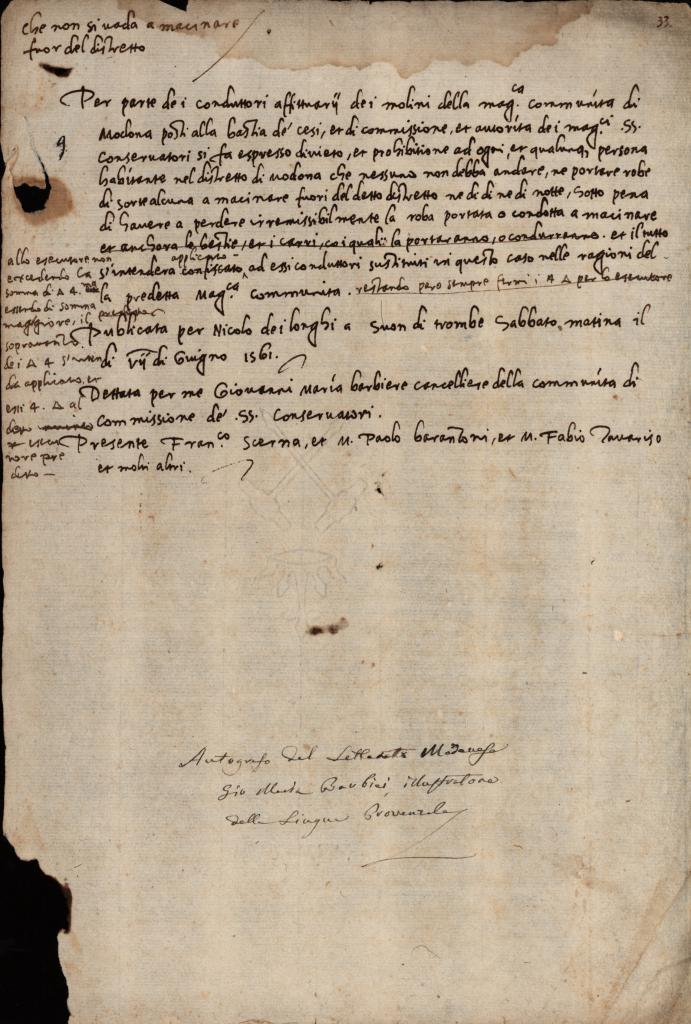 33.
che non si vada a macinare
fuor del distretto
Per parte de i conduttori affittuarij de i molini della mag.ca Communità di
Modona posti alla bastia de' cesi, et di commissione, et autorità de i mag.ci SS.
Conservatori si fa espresso divieto, et prohibitione ad ogni, et qualunq; persona
habitante nel distretto di Modona che nessuno non debba andare, ne portare robe
di sorte alcuna a macinare fuori del detto distretto ne di di ne di notte, sotto pena
di havere a perdere irremissibilmente la roba portata o condotta a macinare
et anchora le bestie, et i carri, co i quali la portaranno, o condurranno. et il tutto
applicato
s'intenderà confiscato, ad essi conduttori sustituiti in questo caso nelle ragioni del-
la predetta Mag.ca Communità. restando però sempre fermi i 4 Δ per lo esecutore
Publicata per Nicolo de i longhi a suon di trombe Sabbato matina il
di vij di Giugno 1561.
Dettata per me Giovanni Maria barbiere cancelliere della communità di
commissione de' SS. Conservatori.
Presente Fran.co Scerna, et M. Paolo barantoni, et M. Fabio
et molti altri.
allo esecutore non
excedendo la
somma di Δ 4.
essendo di somma
maggiore, il
sopravanzo
de i Δ 4 s'inten
da applicato, et
essi 4. Δ al
nore pre
detto
Autografo del Letterato Modenese
Gio Maria Barbieri, illustratore
della Lingua Provenzale